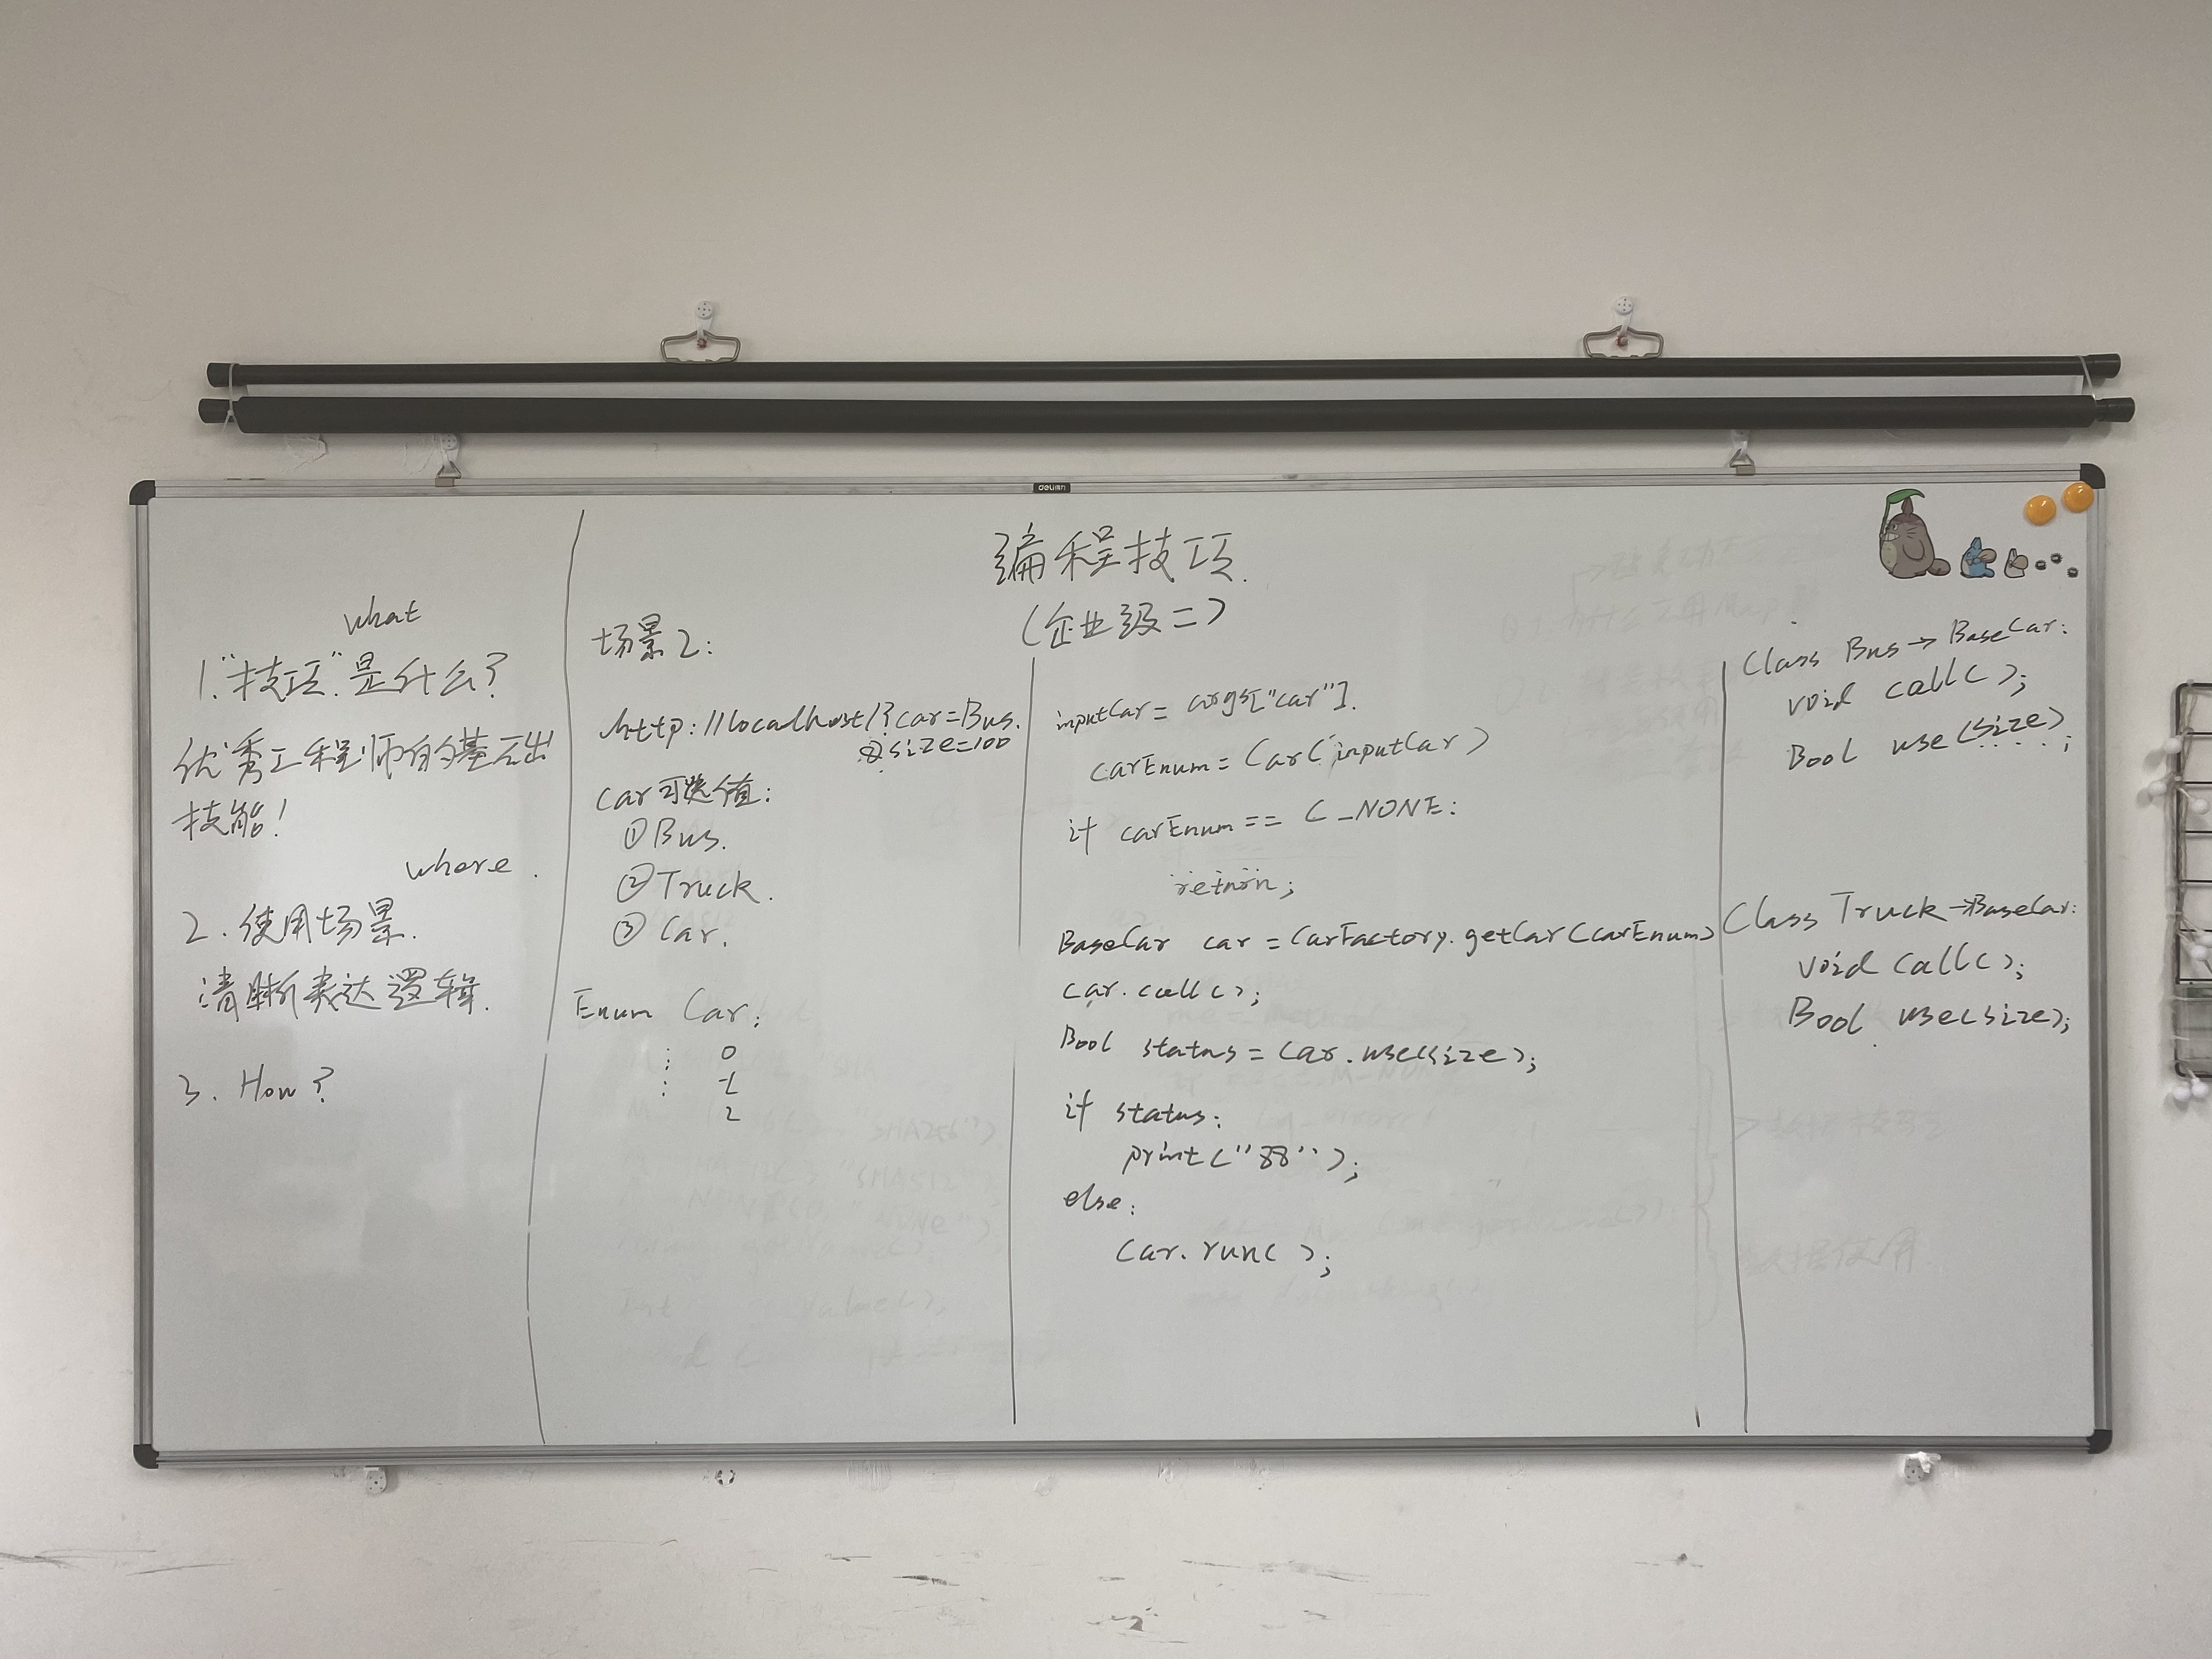 编程技巧.
(企业级二)
what
1."技巧"是什么?
优秀工程师的基础
技能!
where.
2.使用场景.
清晰表达逻辑.
3. How?
场景2:
http://localhost/?car=Bus.
&size=100
Car可选值:
①Bus.
②Truck.
③Car.
Enum Car:
0
1
2
inputCar = args["car"].
carEnum = Car(inputCar)
if carEnum == C_NONE:
return;
BaseCar car = CarFactory.getCar(carEnum)
car.call();
Bool status = Car.use(size);
if status:
print("88");
else:
Car.run();
Class Bus→BaseCar:
void call();
Bool use(size);
Class Truck→BaseCar:
void call();
Bool use(size);
deli